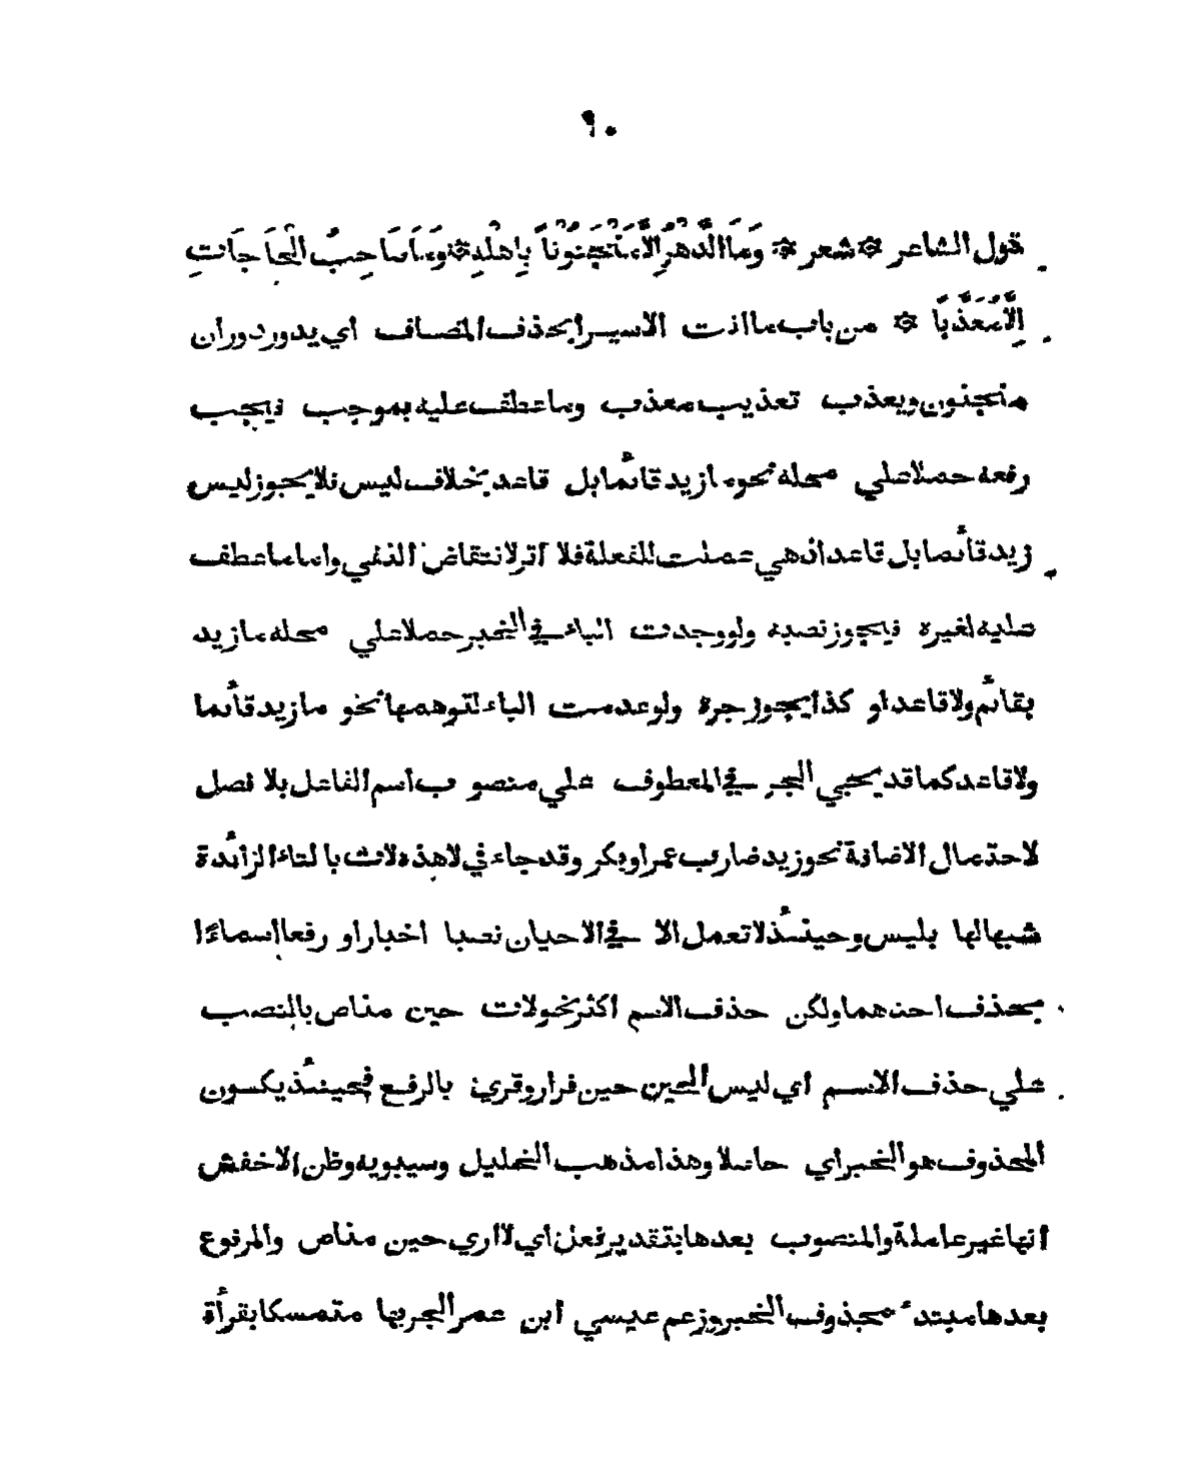 ٩٠
قول الشاعر ۞ شعر ۞ وَمَا الدَّهْرُ اِلَّا مَنْجَنُوْنًا بِاَهْلِهٖ ۞ وَمَا صَاحِبُ الْحَاجَاتِ
اِلَّا مُعَذَّبًا ۞ من باب ما انت الا سيرا بحذف المضاف اي يدور دوران
منجنون ويعذب تعذيب معذب وما عطف عليه بموجب فيجب
رفعه حملا علي محله نحو ما زيد قائما بل قاعد بخلاف ليس فلا يجوز ليس
زيد قائما بل قاعد اذ هي عملت للفعلة فلا اثر لانتقاض النفي واما ما عطف
عليه لغيره فيجوز نصبه ولو وجدت الباء في الخبر حملا علي محله ما زيد
بقائم ولا قاعد او كذا يجوز جره ولو عدمت الباء لتوهمها نحو ما زيد قائما
ولا قاعد كما قد يجي الجر في المعطوف علي منصوب اسم الفاعل بلا فصل
لاحتمال الاضافة نحو زيد ضارب عمرا وبكر وقد جاء في لا هذه لات بالتاء الزائدة
شبها لها بليس وحينئذ لا تعمل الا في الاحيان نصبا اخبارا و رفعا اسماءًا
بحذف احدهما ولكن حذف الاسم اكثر نحو لات حين مناص بالنصب
علي حذف الاسم اي ليس الحين حين فرار وقرئ بالرفع فحينئذ يكون
المحذوف هو الخبر اي حاصلا وهذا مذهب الخليل وسيبويه وظن الاخفش
انها غير عاملة والمنصوب بعدها بتقدير فعل اي لا اري حين مناص والمرفوع
بعدها مبتدء محذوف الخبر وزعم عيسي ابن عمر الجر بها متمسكا بقرأة